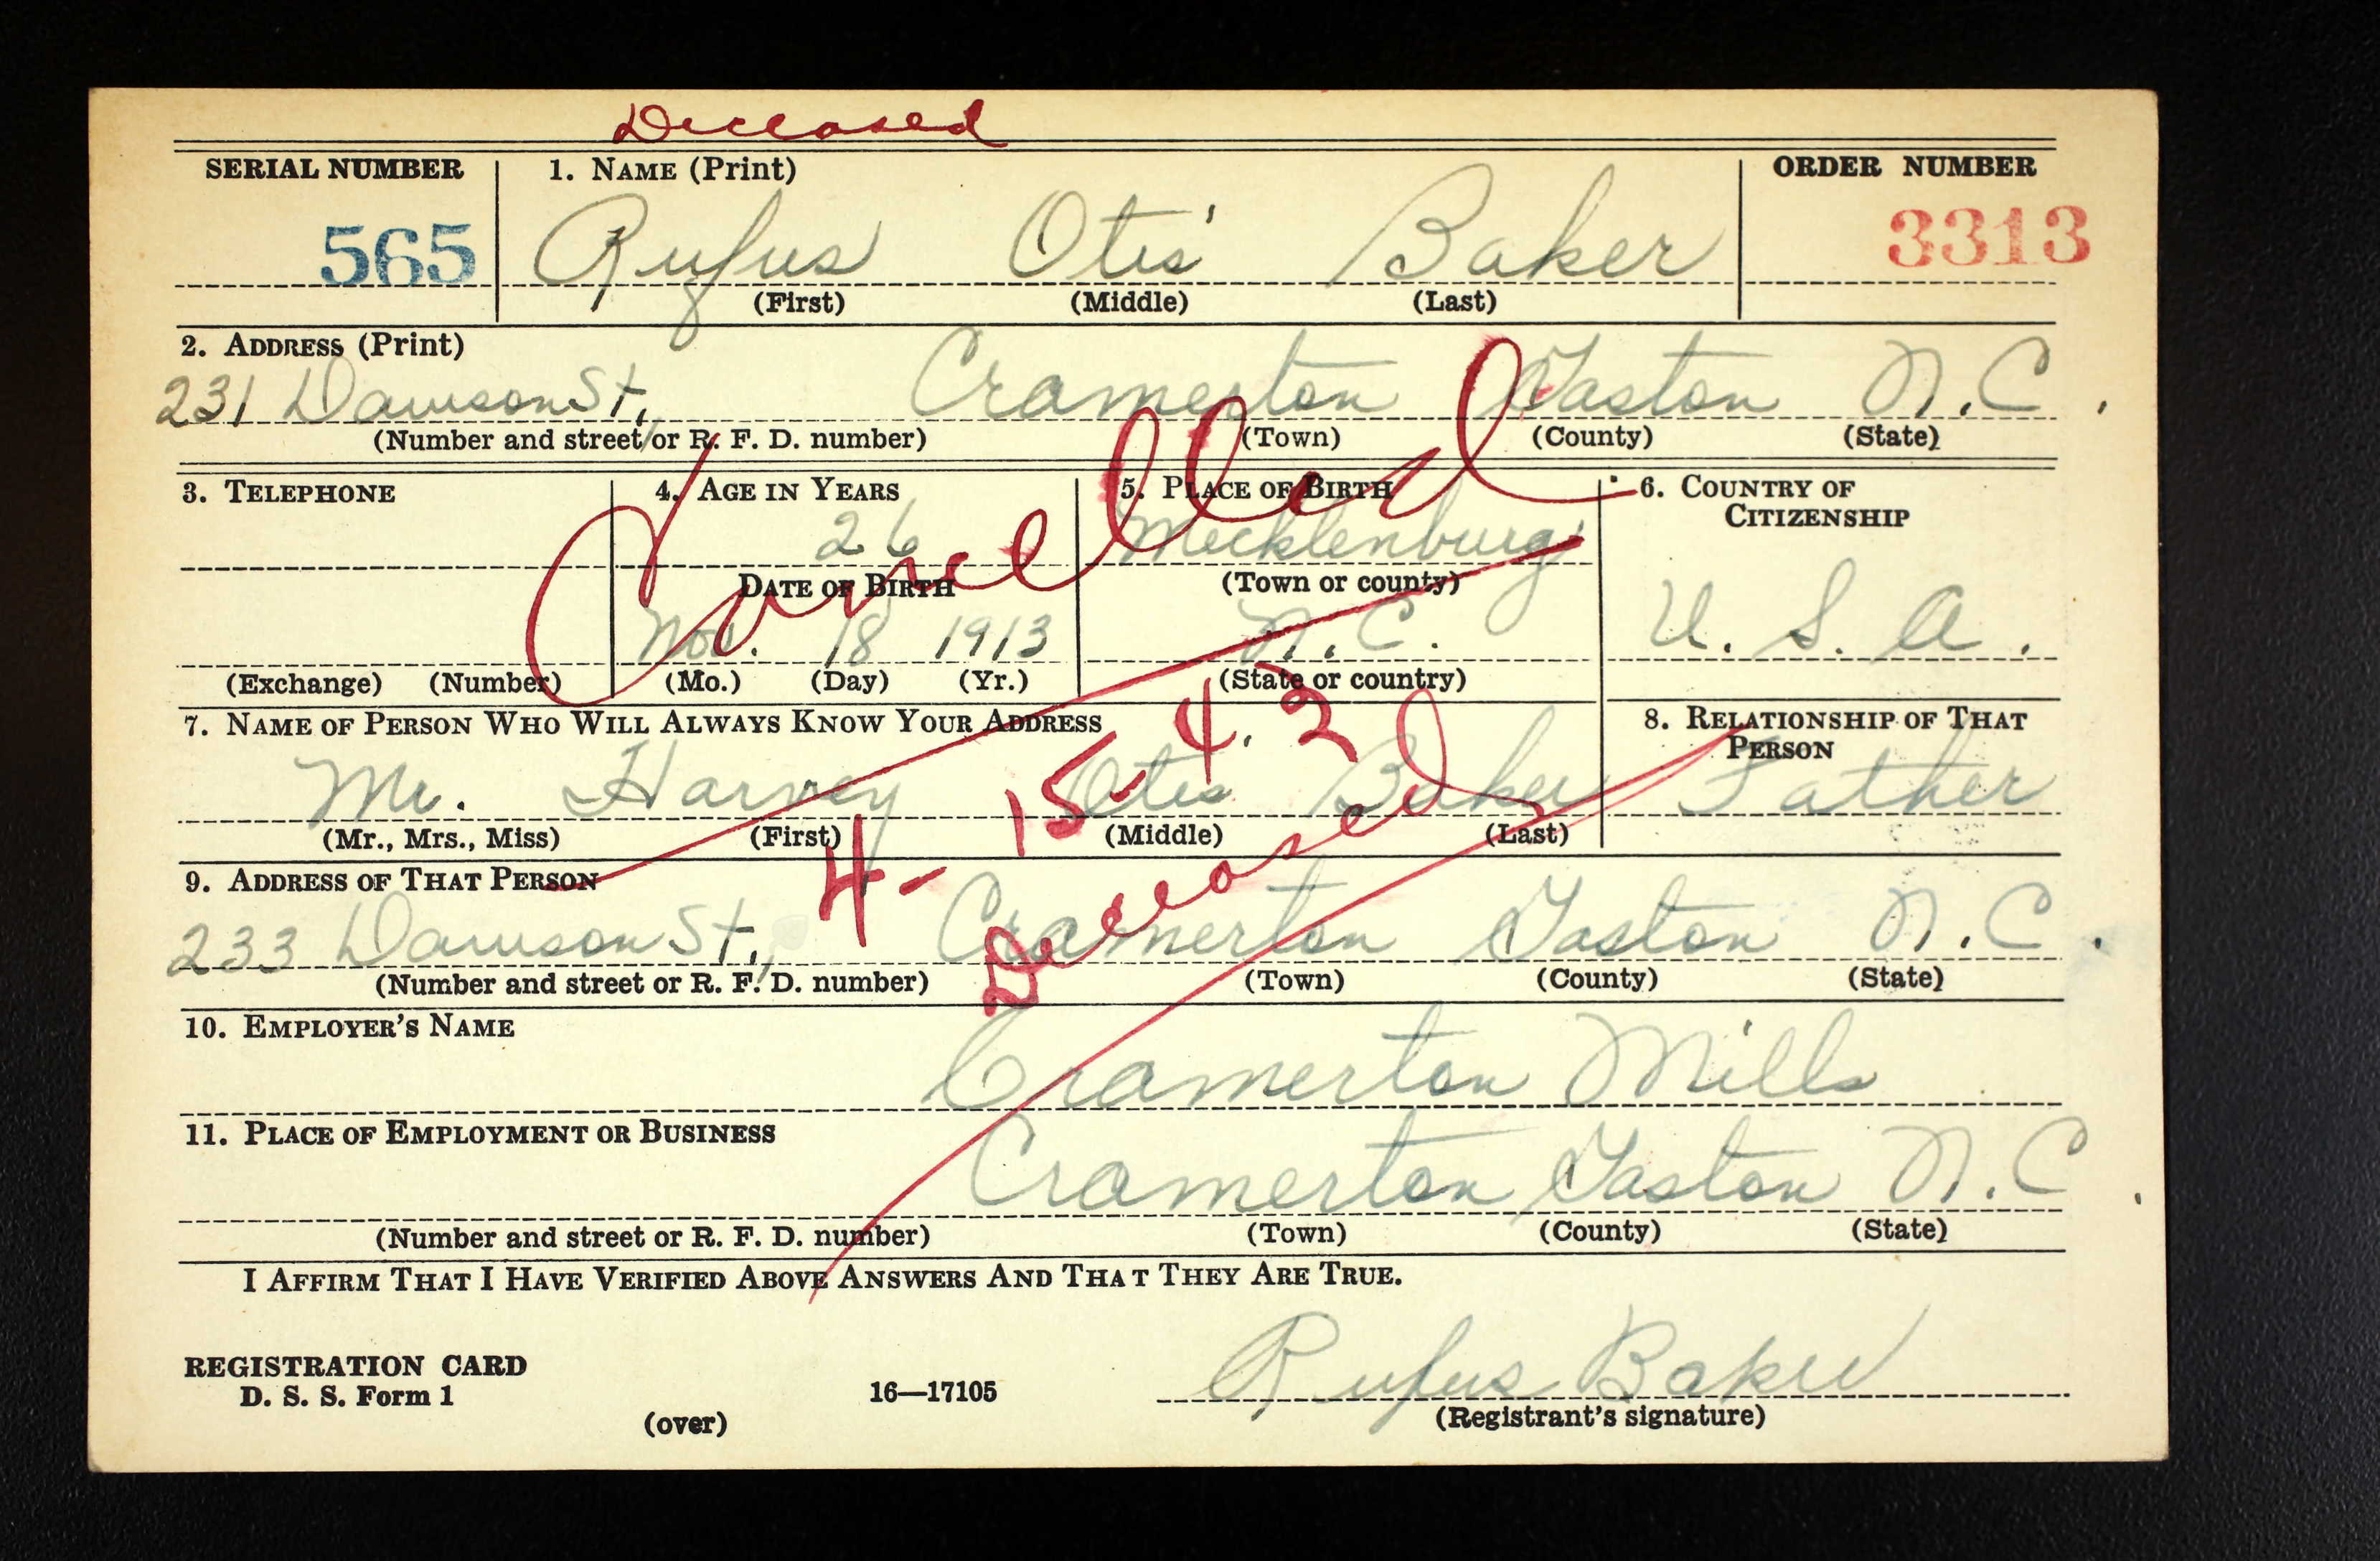 Deceased
SERIAL NUMBER 1. NAME (Print) ORDER NUMBER
565 Rufus Otis Baker 3313
(First) (Middle) (Last)
2. ADDRESS (Print)
231 Dawson St, Cramerton Gaston N.C.
(Number and street or R. F. D. number) (Town) (County) (State)
Cancelled
3. TELEPHONE 4. AGE IN YEARS 5. PLACE OF BIRTH 6. COUNTRY OF CITIZENSHIP
26 Mecklenburg
DATE OF BIRTH (Town or county)
Nov. 18 1913 N.C. U. S. A.
(Exchange) (Number) (Mo.) (Day) (Yr.) (State or country)
4-15-42
7. NAME OF PERSON WHO WILL ALWAYS KNOW YOUR ADDRESS 8. RELATIONSHIP OF THAT PERSON
Mr. Harvey Otis Baker Father
(Mr., Mrs., Miss) (First) (Middle) (Last)
Deceased
9. ADDRESS OF THAT PERSON
233 Dawson St., Cramerton Gaston N.C.
(Number and street or R. F. D. number) (Town) (County) (State)
10. EMPLOYER'S NAME
Cramerton Mills
11. PLACE OF EMPLOYMENT OR BUSINESS
Cramerton Gaston N.C.
(Number and street or R. F. D. number) (Town) (County) (State)
I AFFIRM THAT I HAVE VERIFIED ABOVE ANSWERS AND THAT THEY ARE TRUE.
REGISTRATION CARD
D. S. S. Form 1 16—17105 Rufus Baker
(over) (Registrant's signature)